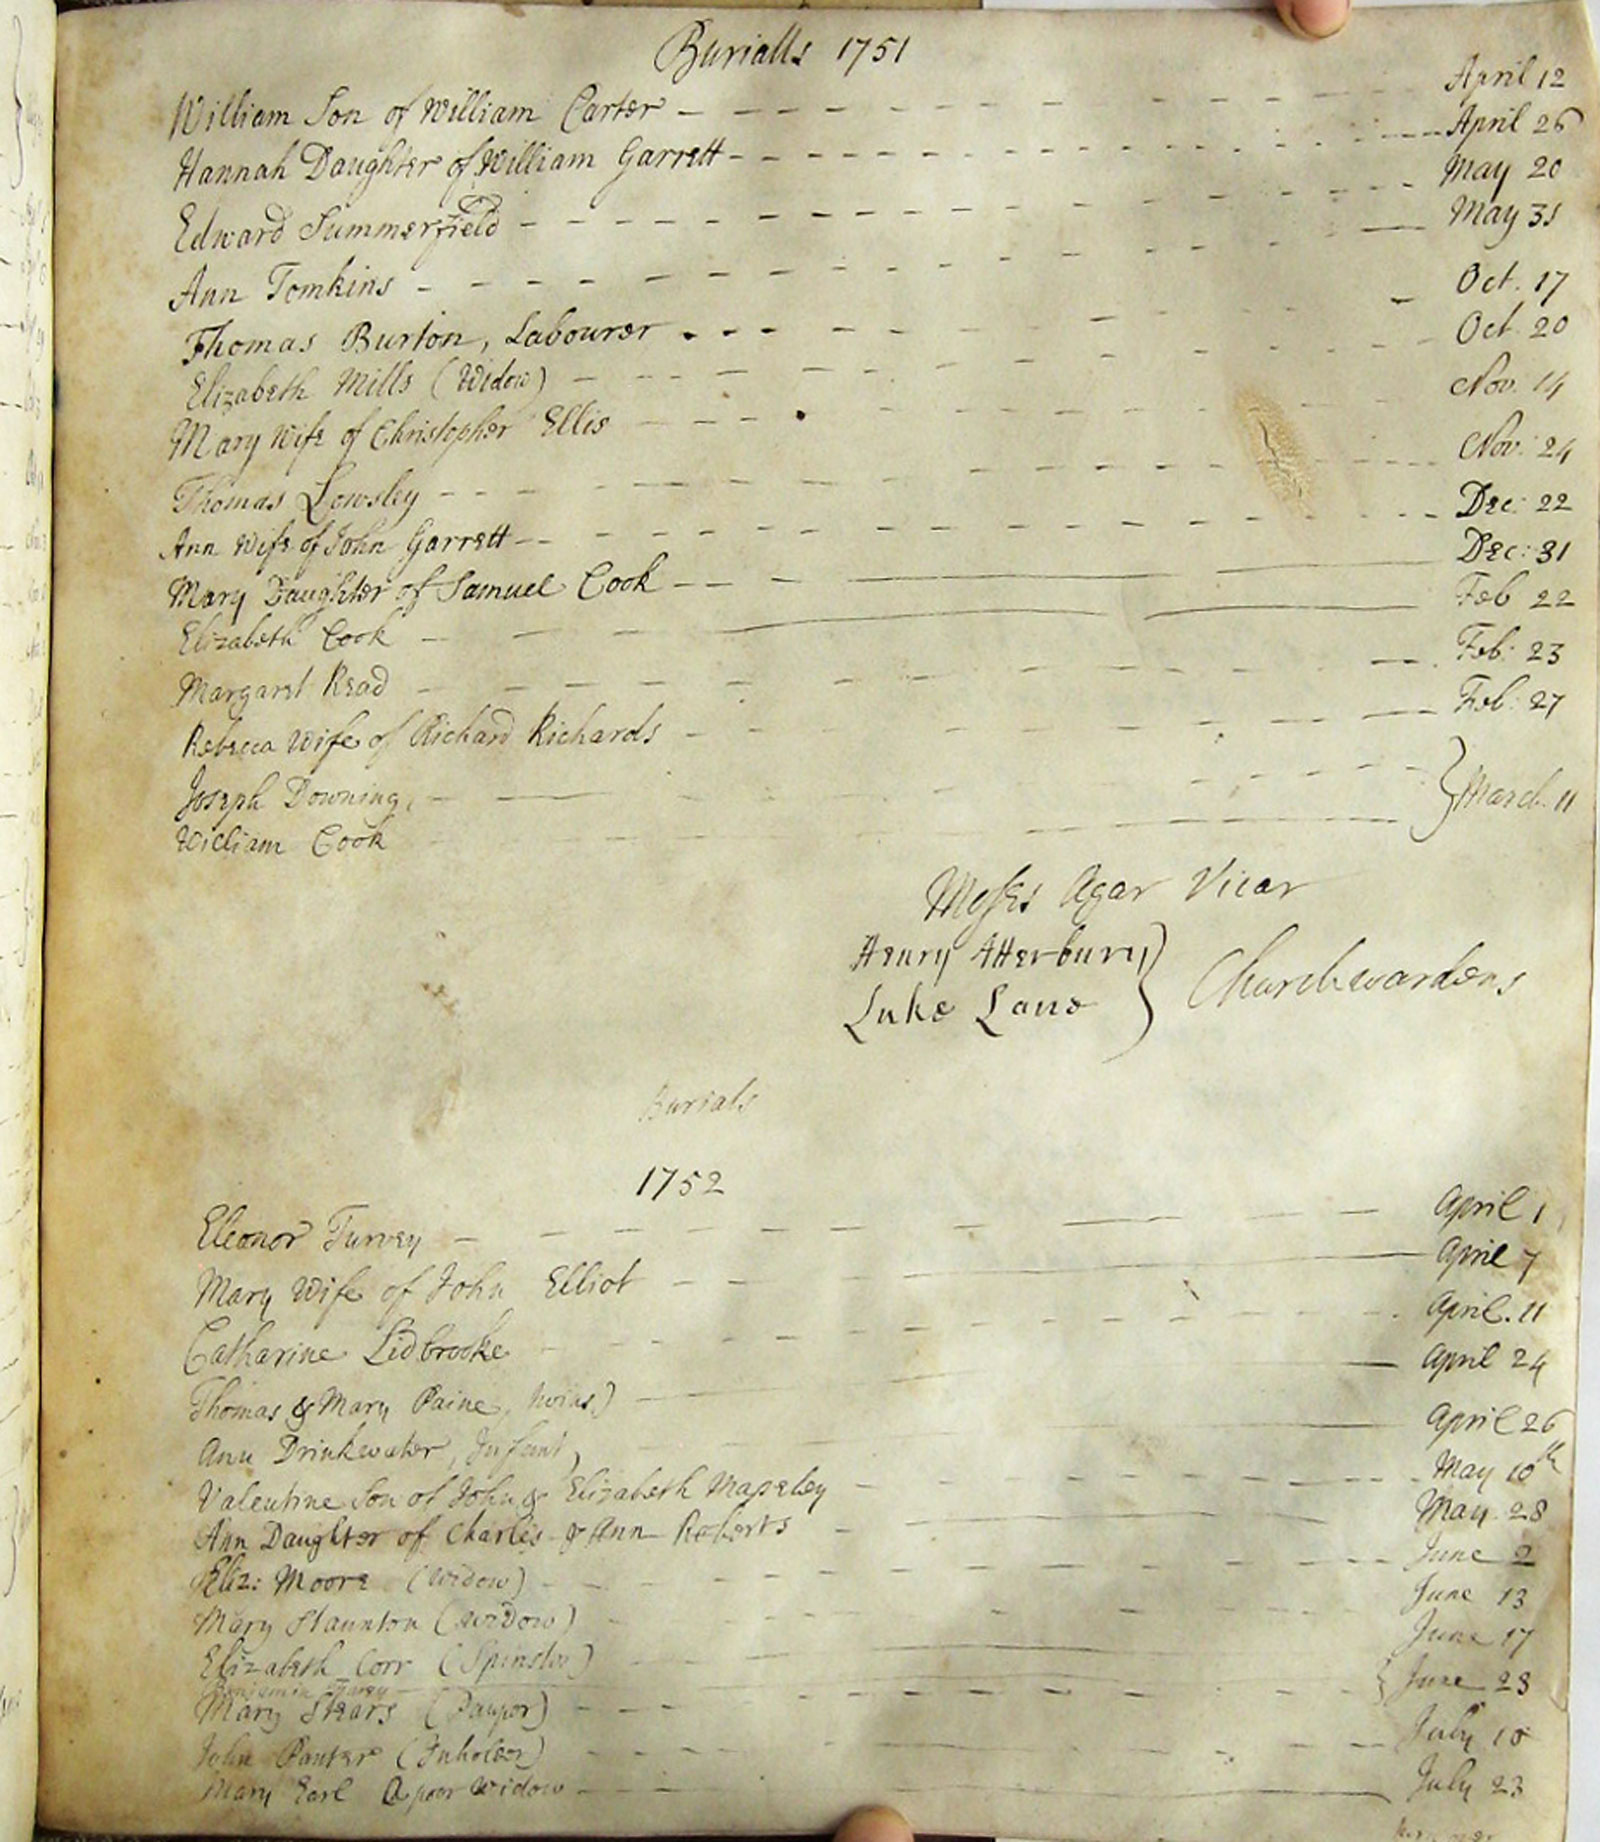 Burialls 1751
William Son of William Carter April 12
Hannah Daughter of William Garrett April 26
Edward Summerfield May 20
Ann Tomkins May 31
Thomas Burton, Labourer Oct. 17
Elizabeth Mills (Widow) Oct. 20
Mary Wife of Christopher Ellis Nov. 14
Thomas Lowsley Nov: 24
Ann Wife of John Garrett Dec: 22
Mary Daughter of Samuel Cook Dec: 31
Elizabeth Cook Feb 22
Margaret Read Feb: 23
Rebecca Wife of Richard Richards Feb: 27
Joseph Downing
William Cook } March 11
Moses Agar Vicar
Henry Atterbury
Luke Lane } Churchwardens
Burials
1752
Eleonor Turvey April 1
Mary Wife of John Elliot April 7
Catharine Lidbrooke April. 11
Thomas & Mary Paine, twins) April 24
Ann Drinkwater, Infant) April 26
Valentine Son of John & Elizabeth Mapeley May 10th
Ann Daughter of Charles & Ann Roberts May. 28
Eliz: Moore (Widow) June 2
Mary Staunton (Widow) June 13
Elizabeth Corr (Spinster) June 17
Benjamin
Mary Stears (Pauper) } June 23
John Panter (Inholder) July 10
Mary Earl A poor Widow July 23